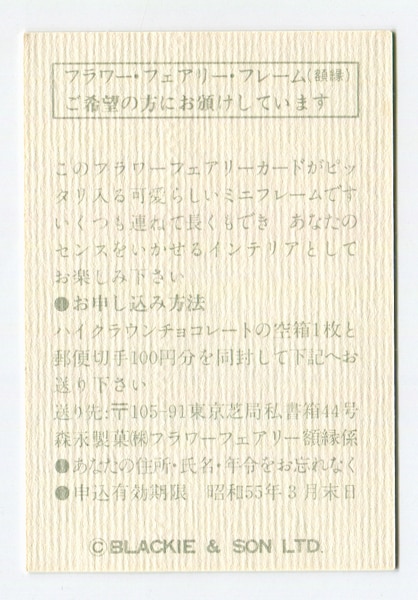 フラワー・フェアリー・フレーム(額縁)
ご希望の方にお頒けしています
このフラワーフェアリーカードがピッ
タリ入る可愛らしいミニフレームです
いくつも連ねて長くもでき あなたの
センスをいかせるインテリアとして
お楽しみ下さい
●お申し込み方法
ハイクラウンチョコレートの空箱1枚と
郵便切手100円分を同封して下記へお
送り下さい
送り先:〒105-91東京芝局私書箱44号
森永製菓㈱フラワーフェアリー額縁係
●あなたの住所・氏名・年令をお忘れなく
●申込有効期限 昭和55年3月末日
©BLACKIE & SON LTD.